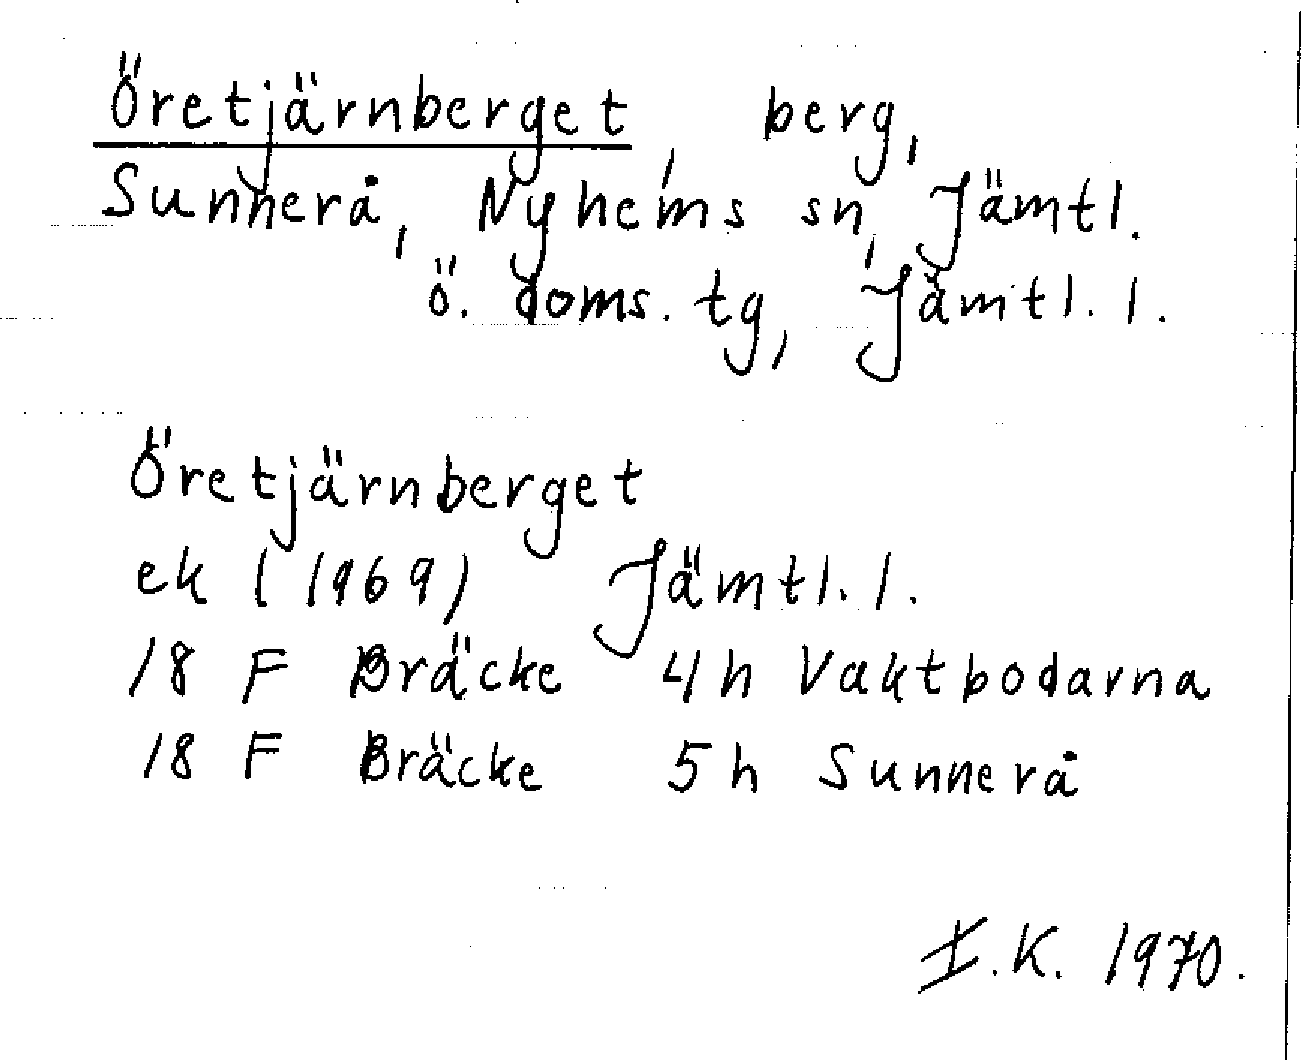 Öretjärnberget, berg,
Sunnerå, Nyhems sn, Jämtl.
ö. doms. tg, Jämtl. l.
Öretjärnberget
ek (1969) Jämtl. l.
18 F Bräcke 4h Vaktbodarna
18 F Bräcke 5h Sunnerå
I.K. 1970.